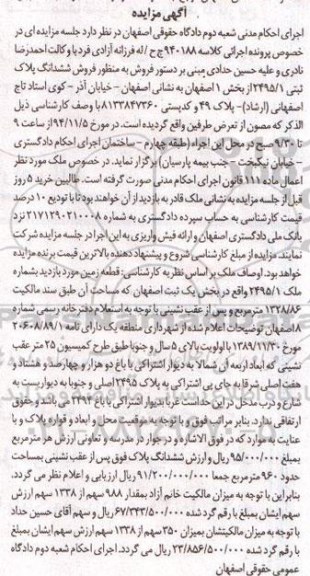 آگهی مزایده
اجرای احکام مدنی شعبه دوم دادگاه حقوقی اصفهان در نظر دارد جلسه مزایده ای در
خصوص پرونده اجرائی کلاسه ۹۴۰۱۸۸ ج ح /له فرزانه آزادی فرد با وکالت احمدرضا
نادری و علیه حسین حدادی مبنی بر دستور فروش به منظور فروش ششدانگ پلاک
ثبتی ۲۴۹۵/۱ از بخش ۱ اصفهان به نشانی اصفهان - خیابان آذر - کوی استاد تاج
اصفهانی (ارشاد)- پلاک ۴۹ و کدپستی ۸۱۳۳۸۴۷۳۶۰ با وصف کارشناسی ذیل
الذکر که مصون از تعرض طرفین واقع گردیده است. در مورخ ۹۴/۱۱/۵ از ساعت ۹
تا ۹/۳۰ صبح در محل این اجراء (طبقه چهارم - ساختمان اجرای احکام دادگستری
- خیابان نیکبخت - جنب بیمه پارسیان) برگزار نماید. در خصوص ملک مورد نظر
اعمال ماده ۱۱۱ قانون اجرای احکام مدنی صورت گرفته است. طالبین خرید ۵ روز
قبل از جلسه مزایده به نشانی ملک قادر به بازدید از آن خواهند بود تا با تودیع ۱۰ درصد
قیمت کارشناسی به حساب سپرده دادگستری به شماره ۲۱۷۱۲۹۰۲۱۰۰۰۸ نزد
بانک ملی دادگستری اصفهان و ارائه فیش واریزی به این اجرا در جلسه مزایده شرکت
نمایند. مزایده از مبلغ کارشناسی شروع و پیشنهاد دهنده بالاترین قیمت برنده مزایده
خواهد بود. اوصاف ملک بر اساس نظریه کارشناسی: قطعه زمین مورد بازدید بشماره
ملک ۲۴۹۵/۱ واقع در بخش یک ثبت اصفهان که مساحت آن طبق سند مالکیت
۱۳۲۸/۸۶ مترمربع و پس از عقب نشینی با توجه به استعلام دفترخانه رسمی شماره
۸ اصفهان توضیحات اعلام شده از شهرداری منطقه یک دارای نامه ۲۰۶۰۸/۸۹/۱
مورخ ۱۳۸۹/۱۲/۳۰ با اولویت بالای ۵ سال و جنوبا طبق طرح کمیسیون ۲۵ متر عقب
نشینی که ابعاد اربعه آن شمالا به دیوار اشتراکی با باغ دو هزار و چهارصد و هشتاد و
هفت اصلی شرقا به جای پی اشتراکی به پلاک ۲۴۹۵ اصلی و جنوبا به دیواریست به
شارع و درب مدخل در این حد است غربا بدیوار اشتراکی با باغ ۲۴۹۴ می باشد و حقوق
ارتفاقی ندارد. بنابر مراتب فوق و با توجه به موقعیت محل و ابعاد و قواره پلاک و با
عنایت به موارد که در فوق الاشاره و در جوار در مدرسه و تعاونی ارزش هر مترمربع
بمبلغ ۹۵/۰۰۰/۰۰۰ ریال و ارزش ششدانگ پلاک فوق پس از عقب نشینی بمساحت
حدود ۹۶۰ مترمربع جمعا ۹۱/۲۰۰/۰۰۰/۰۰۰ ریال ارزیابی و اعلام نظر می گردد.
بنابراین با توجه به میزان مالکیت خانم آزاد بمقدار ۹۸۸ سهم از ۱۳۳۸ سهم ارزش
سهم ایشان بمبلغ با رقم گرد شده ۶۷/۳۴۳/۵۰۰/۰۰۰ ریال و سهم آقای حسین حداد
با توجه به میزان مالکیتشان بمیزان ۳۵۰ سهم از ۱۳۳۸ سهم ارزش سهم ایشان بمبلغ
با رقم گرد شده ۲۳/۸۵۶/۵۰۰/۰۰۰ ریال می گردد. اجرای احکام شعبه دوم دادگاه
عمومی حقوقی اصفهان